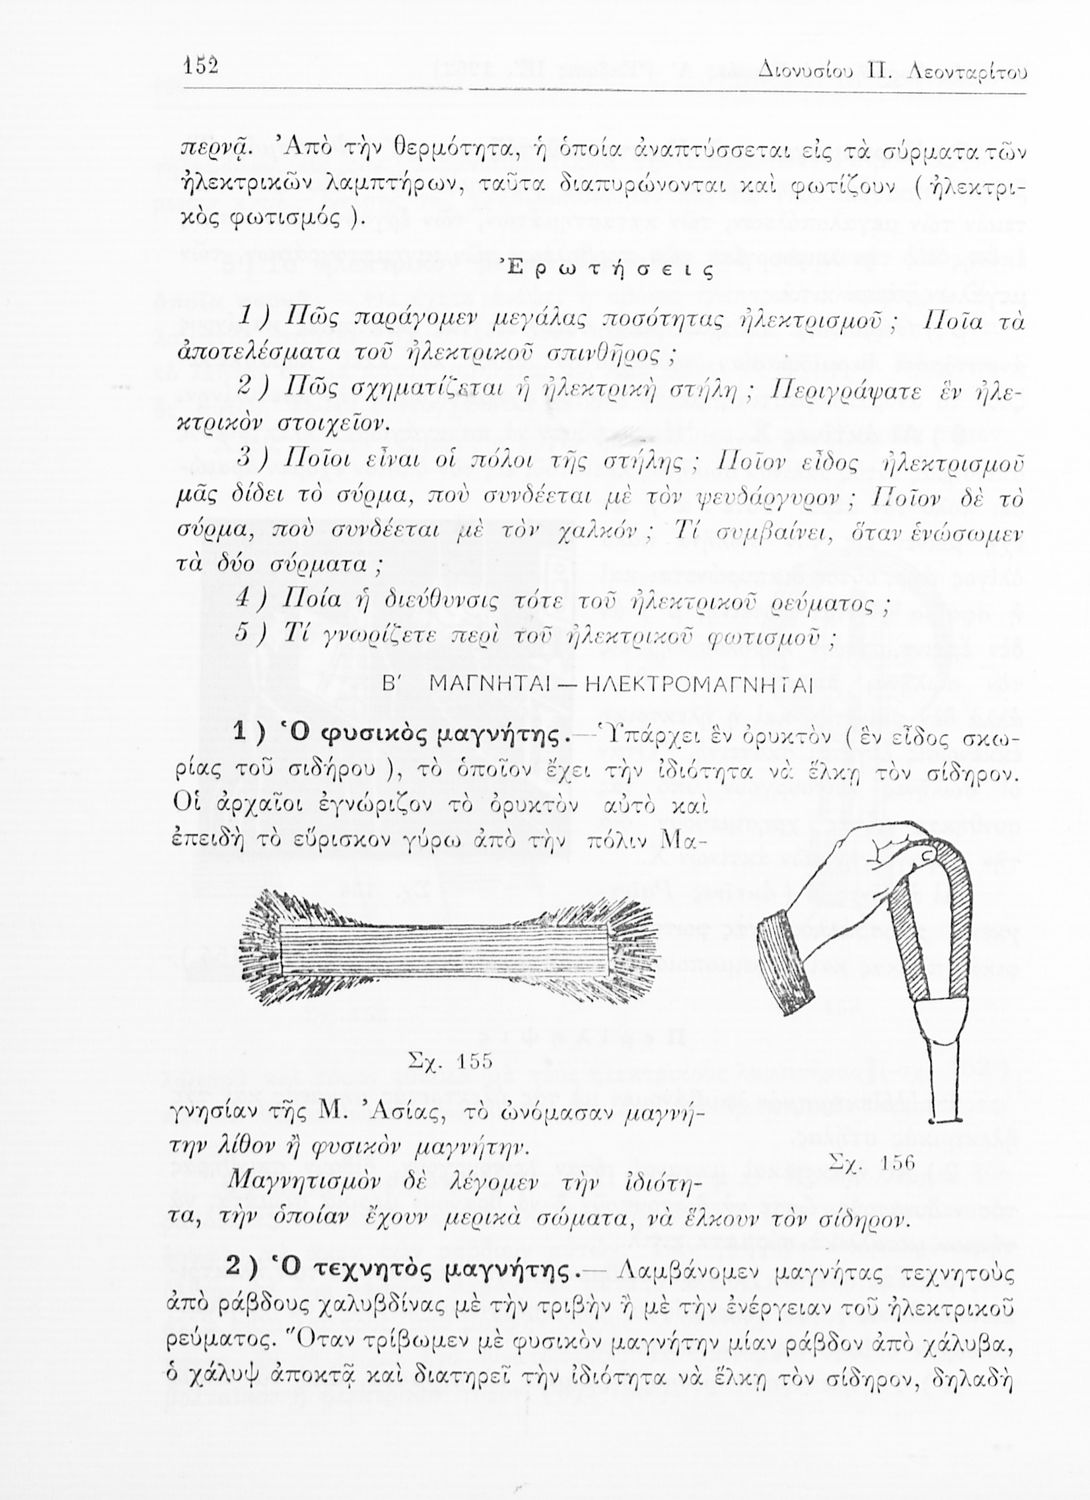 152
Διονυσίου Π. Λεονταρίτου
περνᾷ. Ἀπὸ τὴν θερμότητα, ἡ ὁποία ἀναπτύσσεται εἰς τὰ σύρματα τῶν
ἠλεκτρικῶν λαμπτήρων, ταῦτα διαπυρώνονται καὶ φωτίζουν ( ἠλεκτρι-
κὸς φωτισμός ).
Ἐρωτήσεις
1 ) Πῶς παράγομεν μεγάλας ποσότητας ἠλεκτρισμοῦ ; Ποῖα τὰ
ἀποτελέσματα τοῦ ἠλεκτρικοῦ σπινθῆρος ;
2 ) Πῶς σχηματίζεται ἡ ἠλεκτρικὴ στήλη ; Περιγράψατε ἓν ἠλε-
κτρικὸν στοιχεῖον.
3 ) Ποῖοι εἶναι οἱ πόλοι τῆς στήλης ; Ποῖον εἶδος ἠλεκτρισμοῦ
μᾶς δίδει τὸ σύρμα, ποὺ συνδέεται μὲ τὸν ψευδάργυρον ; Ποῖον δὲ τὸ
σύρμα, ποὺ συνδέεται μὲ τὸν χαλκόν ; Τί συμβαίνει, ὅταν ἑνώσωμεν
τὰ δύο σύρματα ;
4 ) Ποία ἡ διεύθυνσις τότε τοῦ ἠλεκτρικοῦ ρεύματος ;
5 ) Τί γνωρίζετε περὶ τοῦ ἠλεκτρικοῦ φωτισμοῦ ;
Β′ ΜΑΓΝΗΤΑΙ — ΗΛΕΚΤΡΟΜΑΓΝΗΤΑΙ
1 ) Ὁ φυσικὸς μαγνήτης.— Ὑπάρχει ἓν ὀρυκτὸν ( ἓν εἶδος σκω-
ρίας τοῦ σιδήρου ), τὸ ὁποῖον ἔχει τὴν ἰδιότητα νὰ ἕλκῃ τὸν σίδηρον.
Οἱ ἀρχαῖοι ἐγνώριζον τὸ ὀρυκτὸν αὐτὸ καὶ
ἐπειδὴ τὸ εὕρισκον γύρω ἀπὸ τὴν πόλιν Μα-
Σχ. 155
γνησίαν τῆς Μ. Ἀσίας, τὸ ὠνόμασαν μαγνή-
την λίθον ἢ φυσικὸν μαγνήτην.
Σχ. 156
Μαγνητισμὸν δὲ λέγομεν τὴν ἰδιότη-
τα, τὴν ὁποίαν ἔχουν μερικὰ σώματα, νὰ ἕλκουν τὸν σίδηρον.
2 ) Ὁ τεχνητὸς μαγνήτης.— Λαμβάνομεν μαγνήτας τεχνητοὺς
ἀπὸ ράβδους χαλυβδίνας μὲ τὴν τριβὴν ἢ μὲ τὴν ἐνέργειαν τοῦ ἠλεκτρικοῦ
ρεύματος. Ὅταν τρίβωμεν μὲ φυσικὸν μαγνήτην μίαν ράβδον ἀπὸ χάλυβα,
ὁ χάλυψ ἀποκτᾷ καὶ διατηρεῖ τὴν ἰδιότητα νὰ ἕλκῃ τὸν σίδηρον, δηλαδὴ